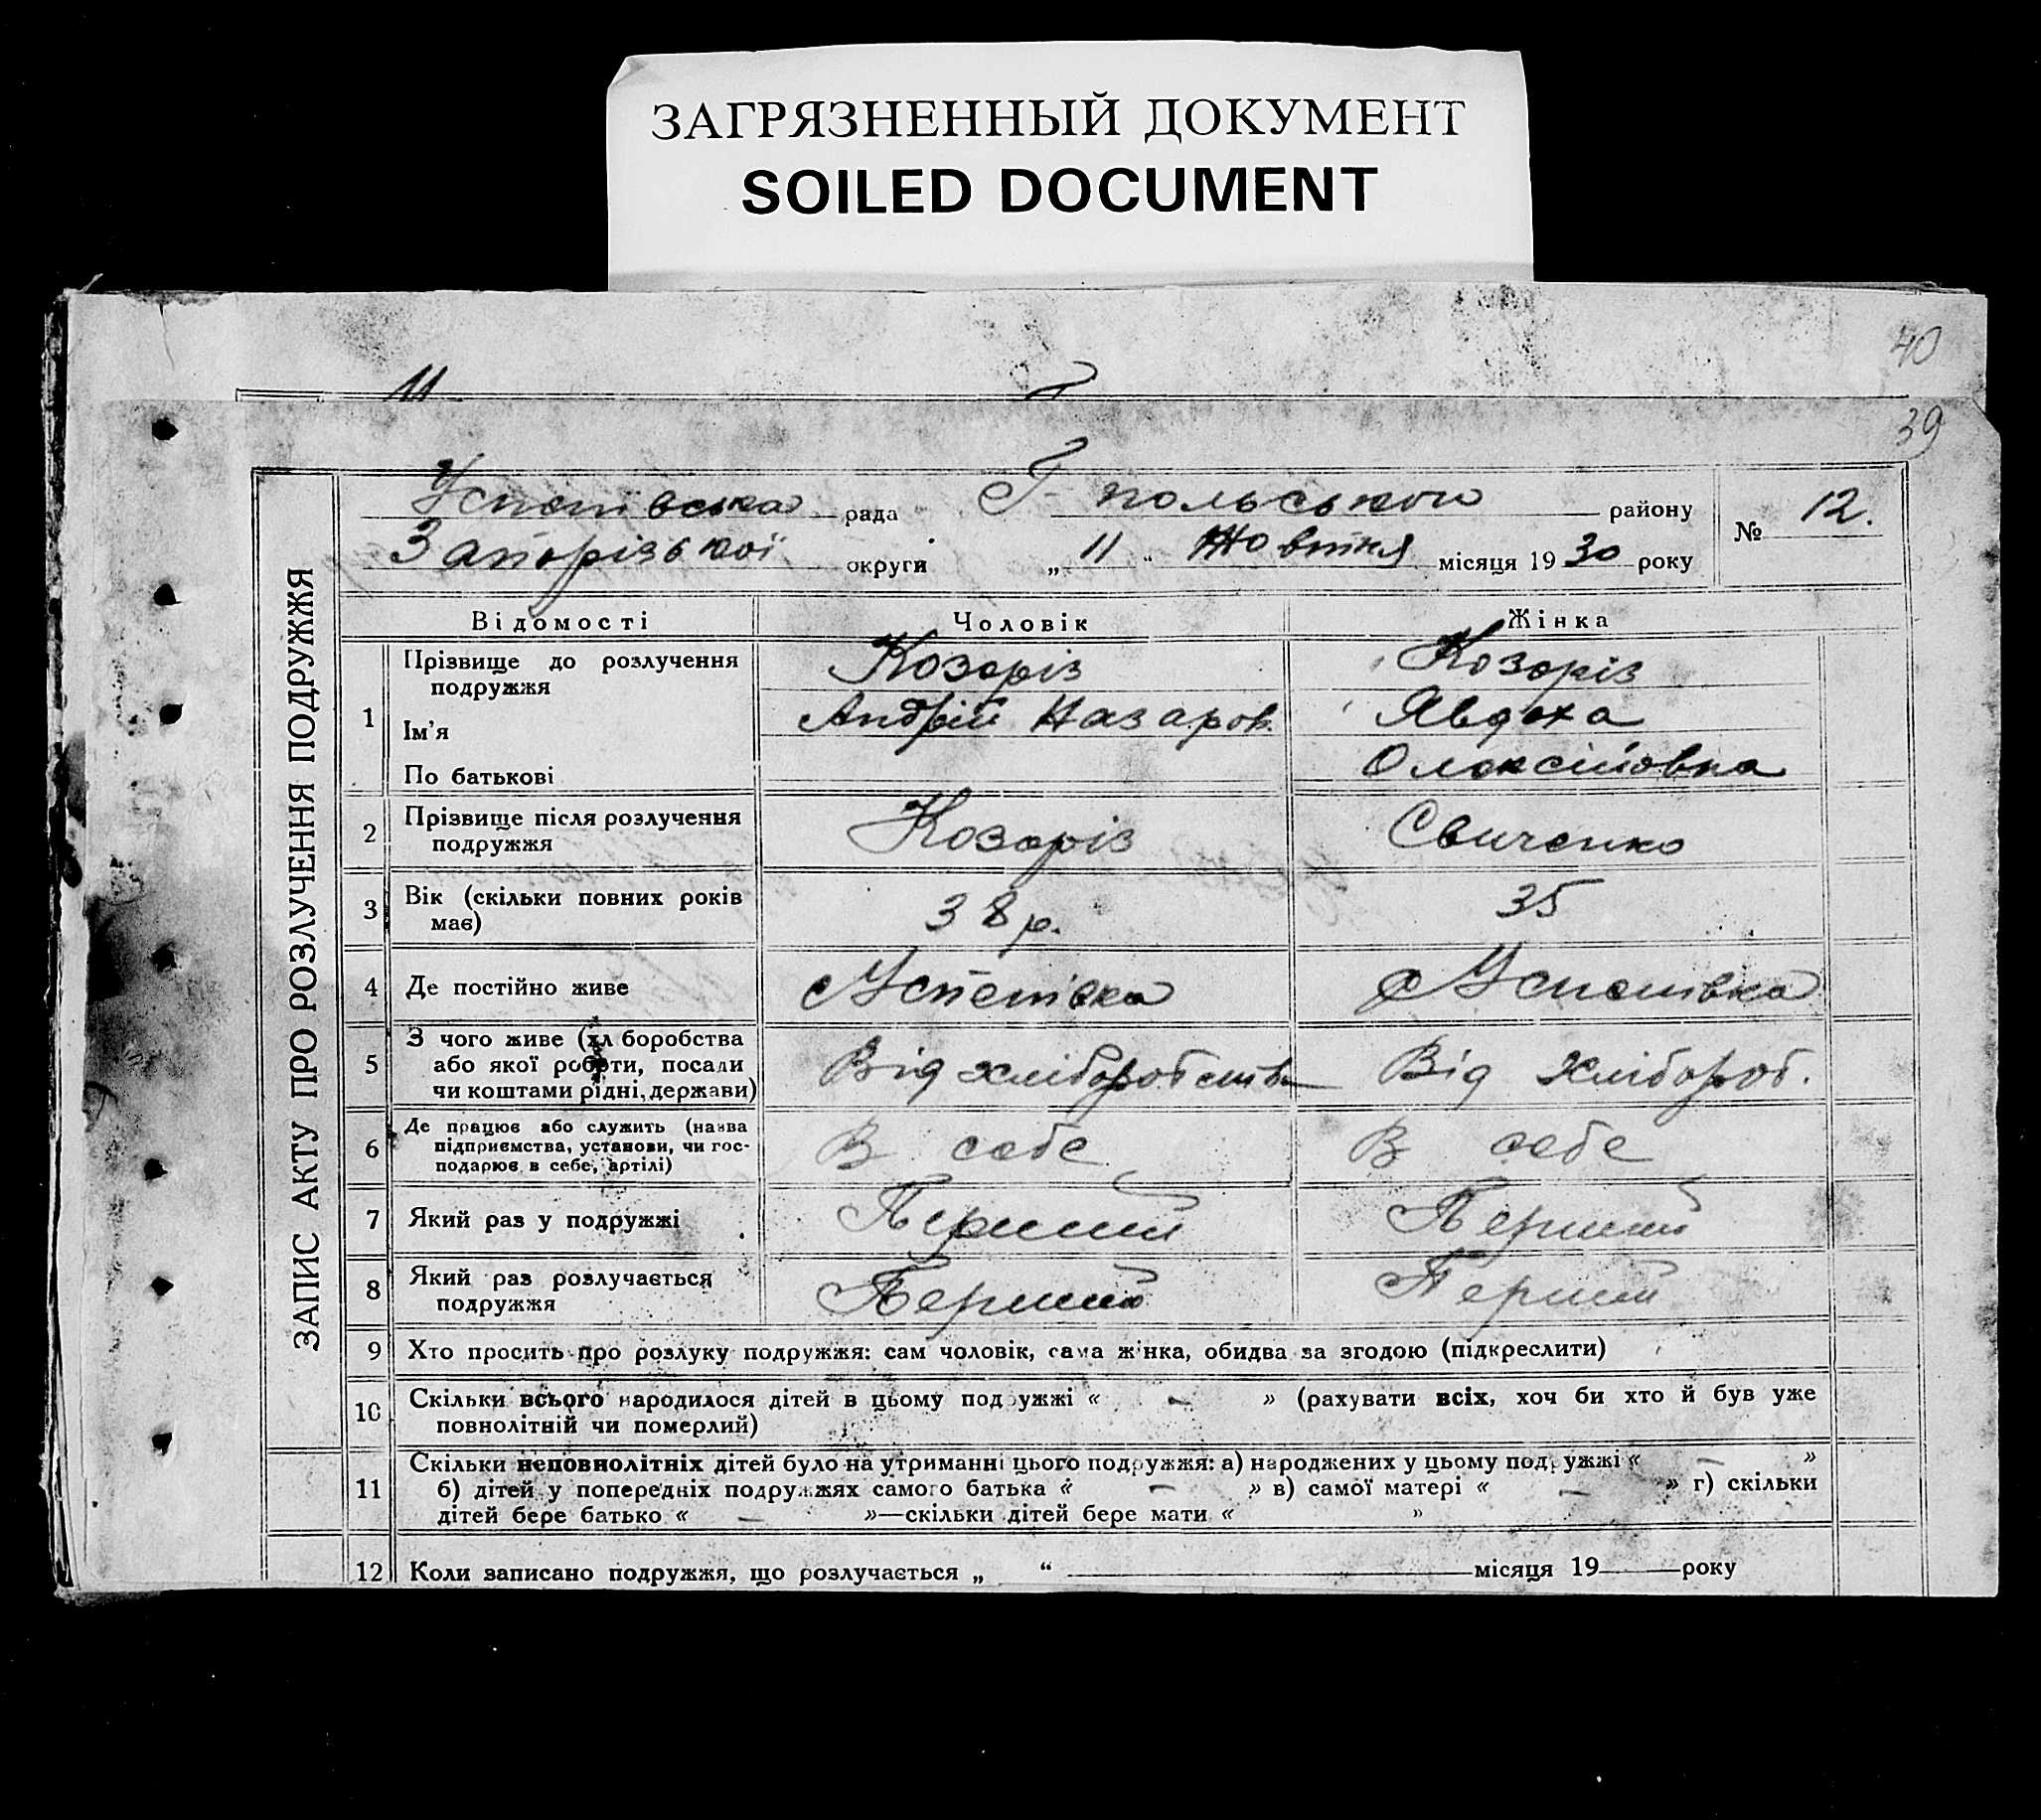 ЗАГРЯЗНЕННЫЙ ДОКУМЕНТ
SOILED DOCUMENT
40
39
ЗАПИС АКТУ ПРО РОЗЛУЧЕННЯ ПОДРУЖЖЯ
Успенівська рада Г-польського району
№ 12.
Запорізької округи „11“ Жовтня місяця 1930 року
Відомості Чоловік Жінка
1 Прізвище до розлучення подружжя Козоріз Козоріз
Ім'я Андрій Назаров. Явдоха
По батькові Олексіївна
2 Прізвище після розлучення подружжя Козоріз Свиченко
3 Вік (скільки повних років має) 38 р. 35
4 Де постійно живе с Успенівка с Успенівка
5 З чого живе (хл боробства
або якої роботи, посади
чи коштами рідні, держави) Від хліборобства Від хлібороб.
6 Де працює або служить (назва
підприємства, установи, чи гос-
подарює в себе, артілі) В себе В себе
7 Який раз у подружжі Перший Перший
8 Який раз розлучається подружжя Перший Перший
9 Хто просить про розлуку подружжя: сам чоловік, сама жінка, обидва за згодою (підкреслити)
10 Скільки всього народилося дітей в цьому подружжі « — » (рахувати всіх, хоч би хто й був уже
повнолітній чи померлий)
11 Скільки неповнолітніх дітей було на утриманні цього подружжя: а) народжених у цьому подружжі « — »
б) дітей у попередніх подружжях самого батька « — » в) самої матері « — » г) скільки
дітей бере батько « — »—скільки дітей бере мати « »
12 Коли записано подружжя, що розлучається „ “ місяця 19 року